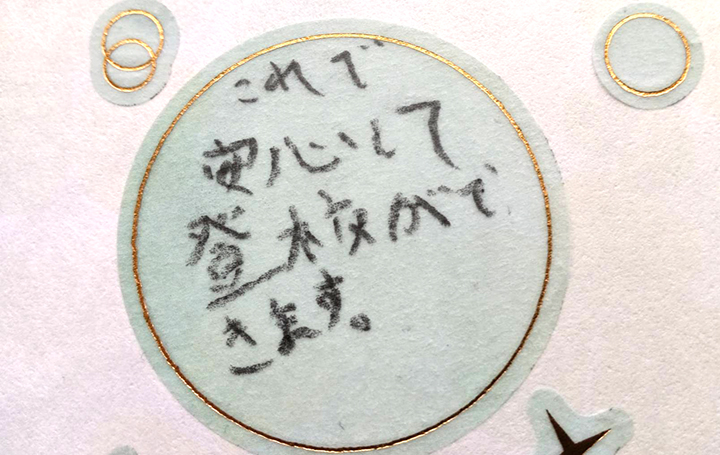 これで
安心して
登校がで
きます。